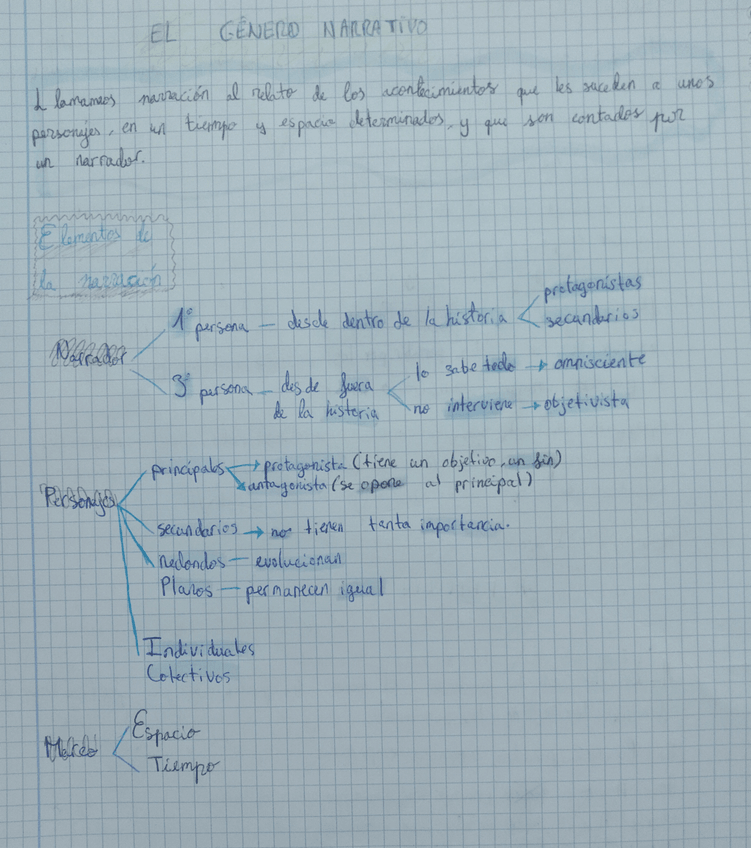 EL GÉNERO NARRATIVO
Llamamos narración al relato de los acontecimientos que les suceden a unos
personajes, en un tiempo y espacio determinados, y que son contados por
un narrador.
Elementos de
la narración
Narrador
1ª persona — desde dentro de la historia
protagonistas
secundarios
3ª persona — desde fuera
de la historia
lo sabe todo → omnisciente
no interviene → objetivista
Personajes
principales
→ protagonista (tiene un objetivo, un fin)
antagonista (se opone al principal)
secundarios → no tienen tanta importancia.
Redondos — evolucionan
Planos — permanecen igual
Individuales
Colectivos
Marco
Espacio
Tiempo